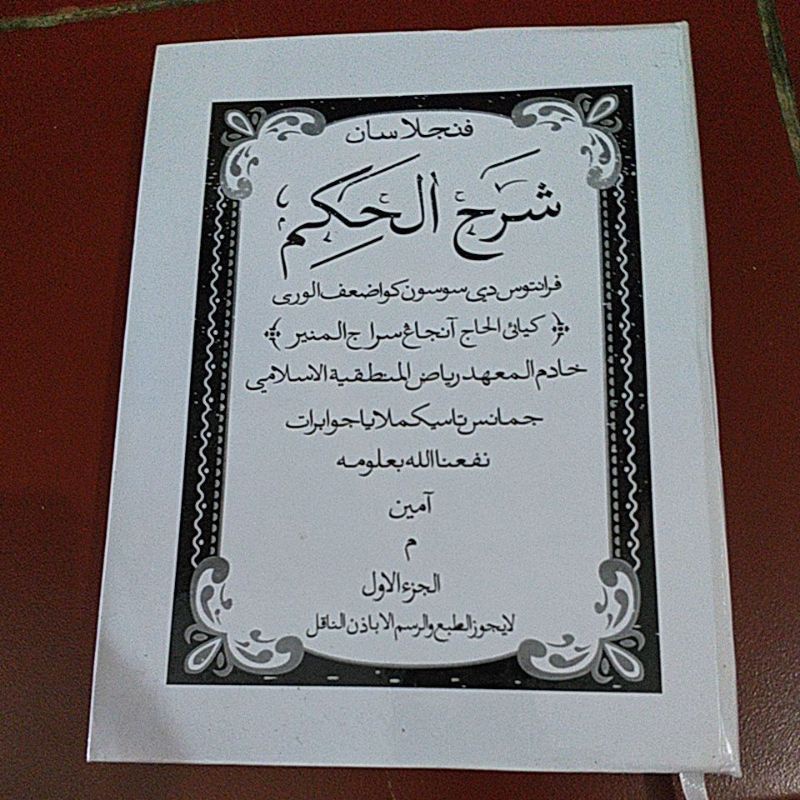 فنجلاسان
شَرَح الحَكِم
فرانتوس دي سوسون كو اضعف الورى
﴿ كيائي الحاج آنجاڠ سراج المنير ﴾
خادم المعهد رياض المنطقية الاسلامي
جمانس تاسيكملايا جوا برات
نفعنا الله بعلومه
آمين
م
الجزء الاول
لا يجوز الطبع والرسم الا باذن الناقل